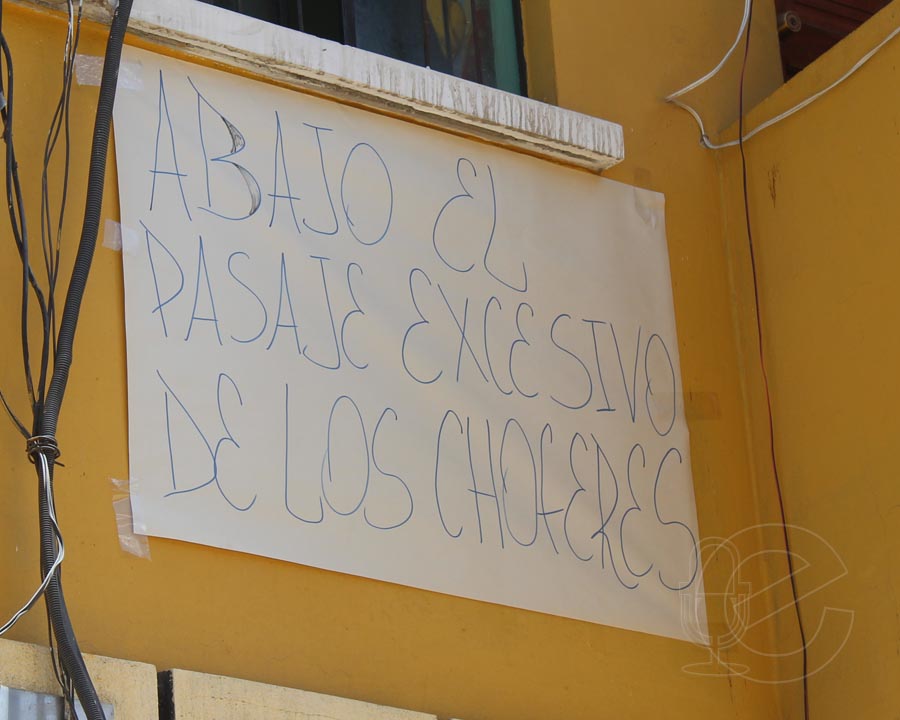 ABAJO EL
PASAJE EXCESIVO
DE LOS CHOFERES